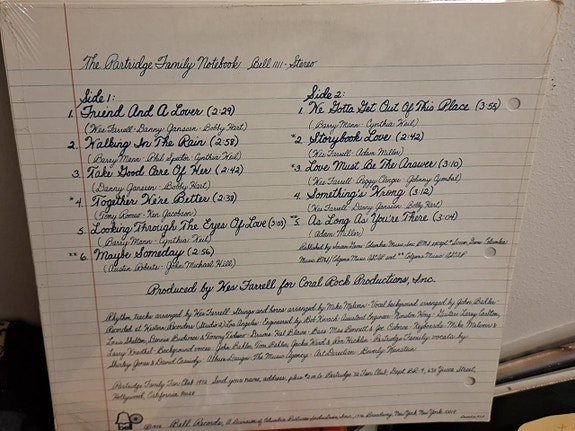 The Partridge Family Notebook Bell 1111 - Stereo
Side 1:
1. Friend And A Lover (2:29)
(Wes Farrell-Danny Janssen-Bobby Hart)
2. Walking In The Rain (2:58)
(Barry Mann-Phil Spector-Cynthia Weil)
3. Take Good Care Of Her (2:42)
(Danny Janssen-Bobby Hart)
*4. Together We're Better (2:38)
(Tony Romeo-Ken Jacobson)
5. Looking Through The Eyes Of Love (3:03)
(Barry Mann-Cynthia Weil)
**6. Maybe Someday (2:56)
(Austin Roberts-John Michael Hill)
Side 2:
1. We Gotta Get Out Of This Place (3:55)
(Barry Mann-Cynthia Weil)
*2. Storybook Love (2:42)
(Wes Farrell-Adam Miller)
*3. Love Must Be The Answer (3:10)
(Wes Farrell-Peggy Clinger-Johnny Cymbal)
4. Something's Wrong (3:12)
(Wes Farrell-Danny Janssen-Bobby Hart)
*5. As Long As You're There (3:04)
(Adam Miller)
Published by Screen Gems-Columbia Music, Inc. BMI except *Screen Gems-Columbia
Music BMI/Colgems Music ASCAP and **Colgems Music ASCAP
Produced by Wes Farrell for Coral Rock Productions, Inc.
Rhythm tracks arranged by Wes Farrell. Strings and horns arranged by Mike Melvoin. Vocal background arranged by John Bahler.
Recorded at Western Recorders (Studio 2) Los Angeles. Engineered by Bob Kovach. Assistant Engineer: Winston Wong. Guitars: Larry Carlton,
Louis Shelton, Dennis Budimer & Tommy Tedesco. Drums: Hal Blaine. Bass: Max Bennett & Joe Osborn. Keyboards: Mike Melvoin &
Larry Knechtel. Background voices: John Bahler, Tom Bahler, Jackie Ward & Ron Hicklin. Partridge Family vocals by:
Shirley Jones & David Cassidy. Album Design: The Music Agency. Art Direction: Beverly Weinstein
Partridge Family Fan Club 1972. Send your name, address, plus to Partridge Fan Club, Dept.
Hollywood, California 90028
Bell Records, A Division of Columbia Pictures Industries, Inc., 1776 Broadway, New York, New York 10019